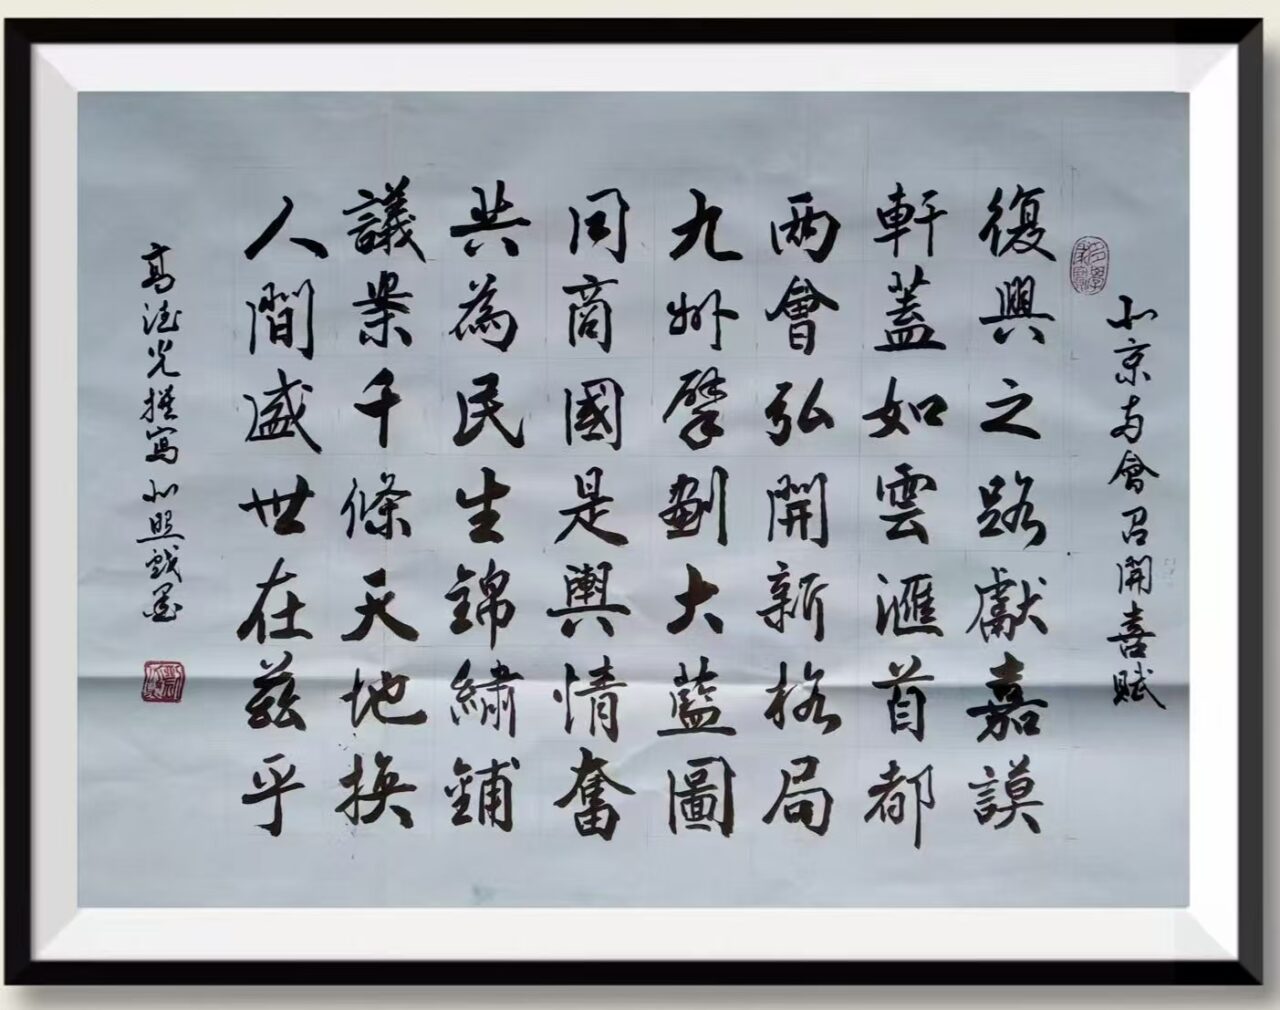 北京两會召開喜賦
復興之路獻嘉謨
軒蓋如雲滙首都
兩會弘開新格局
九州擘劃大藍圖
同商國是輿情奮
共為民生錦繡鋪
議案千條天地換
人間盛世在茲乎
高德光撰寫 照戲墨